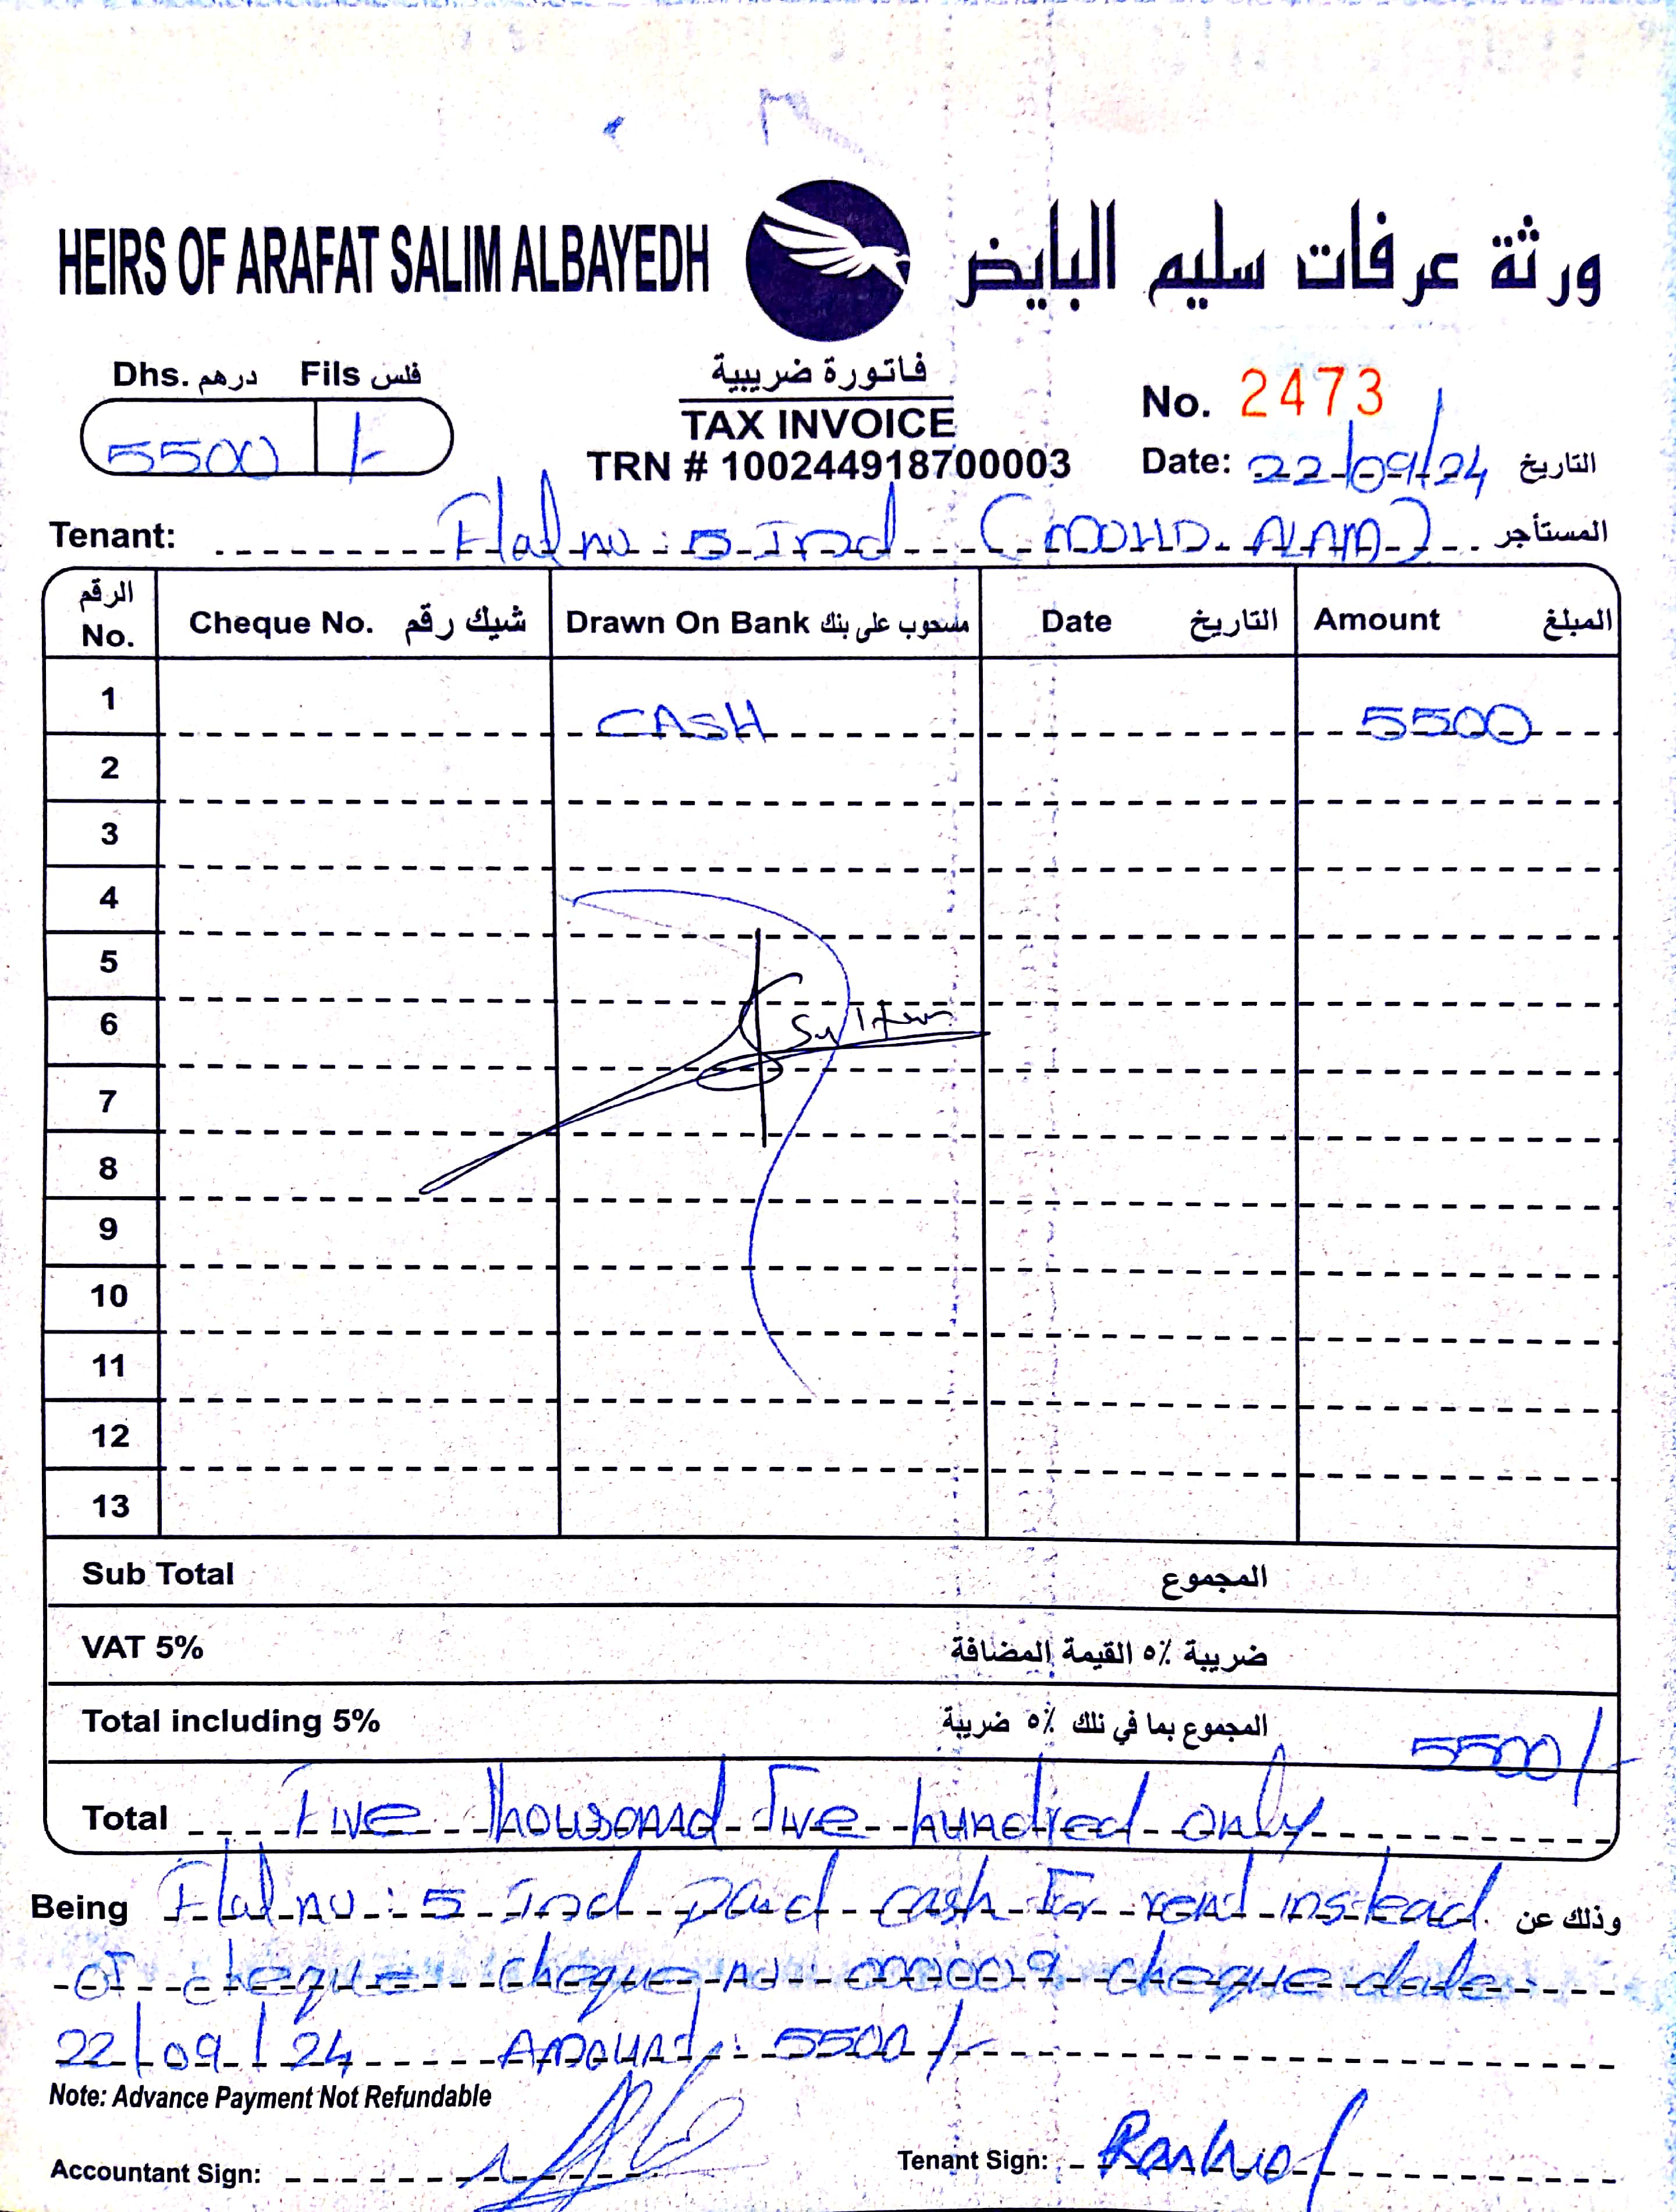 HEIRS OF ARAFAT SALIM ALBAYEDH ورثة عرفات سليم البايض
Dhs. درهم Fils فلس
5500 /-
فاتورة ضريبية
TAX INVOICE
TRN # 100244918700003
No. 2473
Date: 22/09/24 التاريخ
Tenant: Flat no : 5 Ind (MOHD. ALAM) المستأجر
الرقم No. Cheque No. شيك رقم Drawn On Bank مسحوب على بنك Date التاريخ Amount المبلغ
1 CASH 5500
2
3
4
5
6 Sultan
7
8
9
10
11
12
13
Sub Total المجموع
VAT 5% ضريبة ٥٪ القيمة المضافة
Total including 5% المجموع بما في تلك ٥٪ ضريبة 5500/-
Total Five thousand five hundred only
Being Flat no : 5 Ind paid cash for rent instead وذلك عن
of cheque cheque no 000009 cheque date
22/09/24 Amount : 5500/-
Note: Advance Payment Not Refundable
Accountant Sign:
Tenant Sign: Rashid